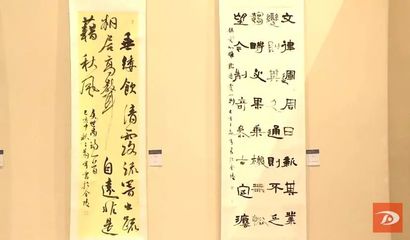 文律運周日新其業
變則其久通則不乏
趨時必果乘機無怯
望今制奇參古定法
垂緌飲清露流響出疏
桐居高聲自遠非是
藉秋風
虞世南詩一首